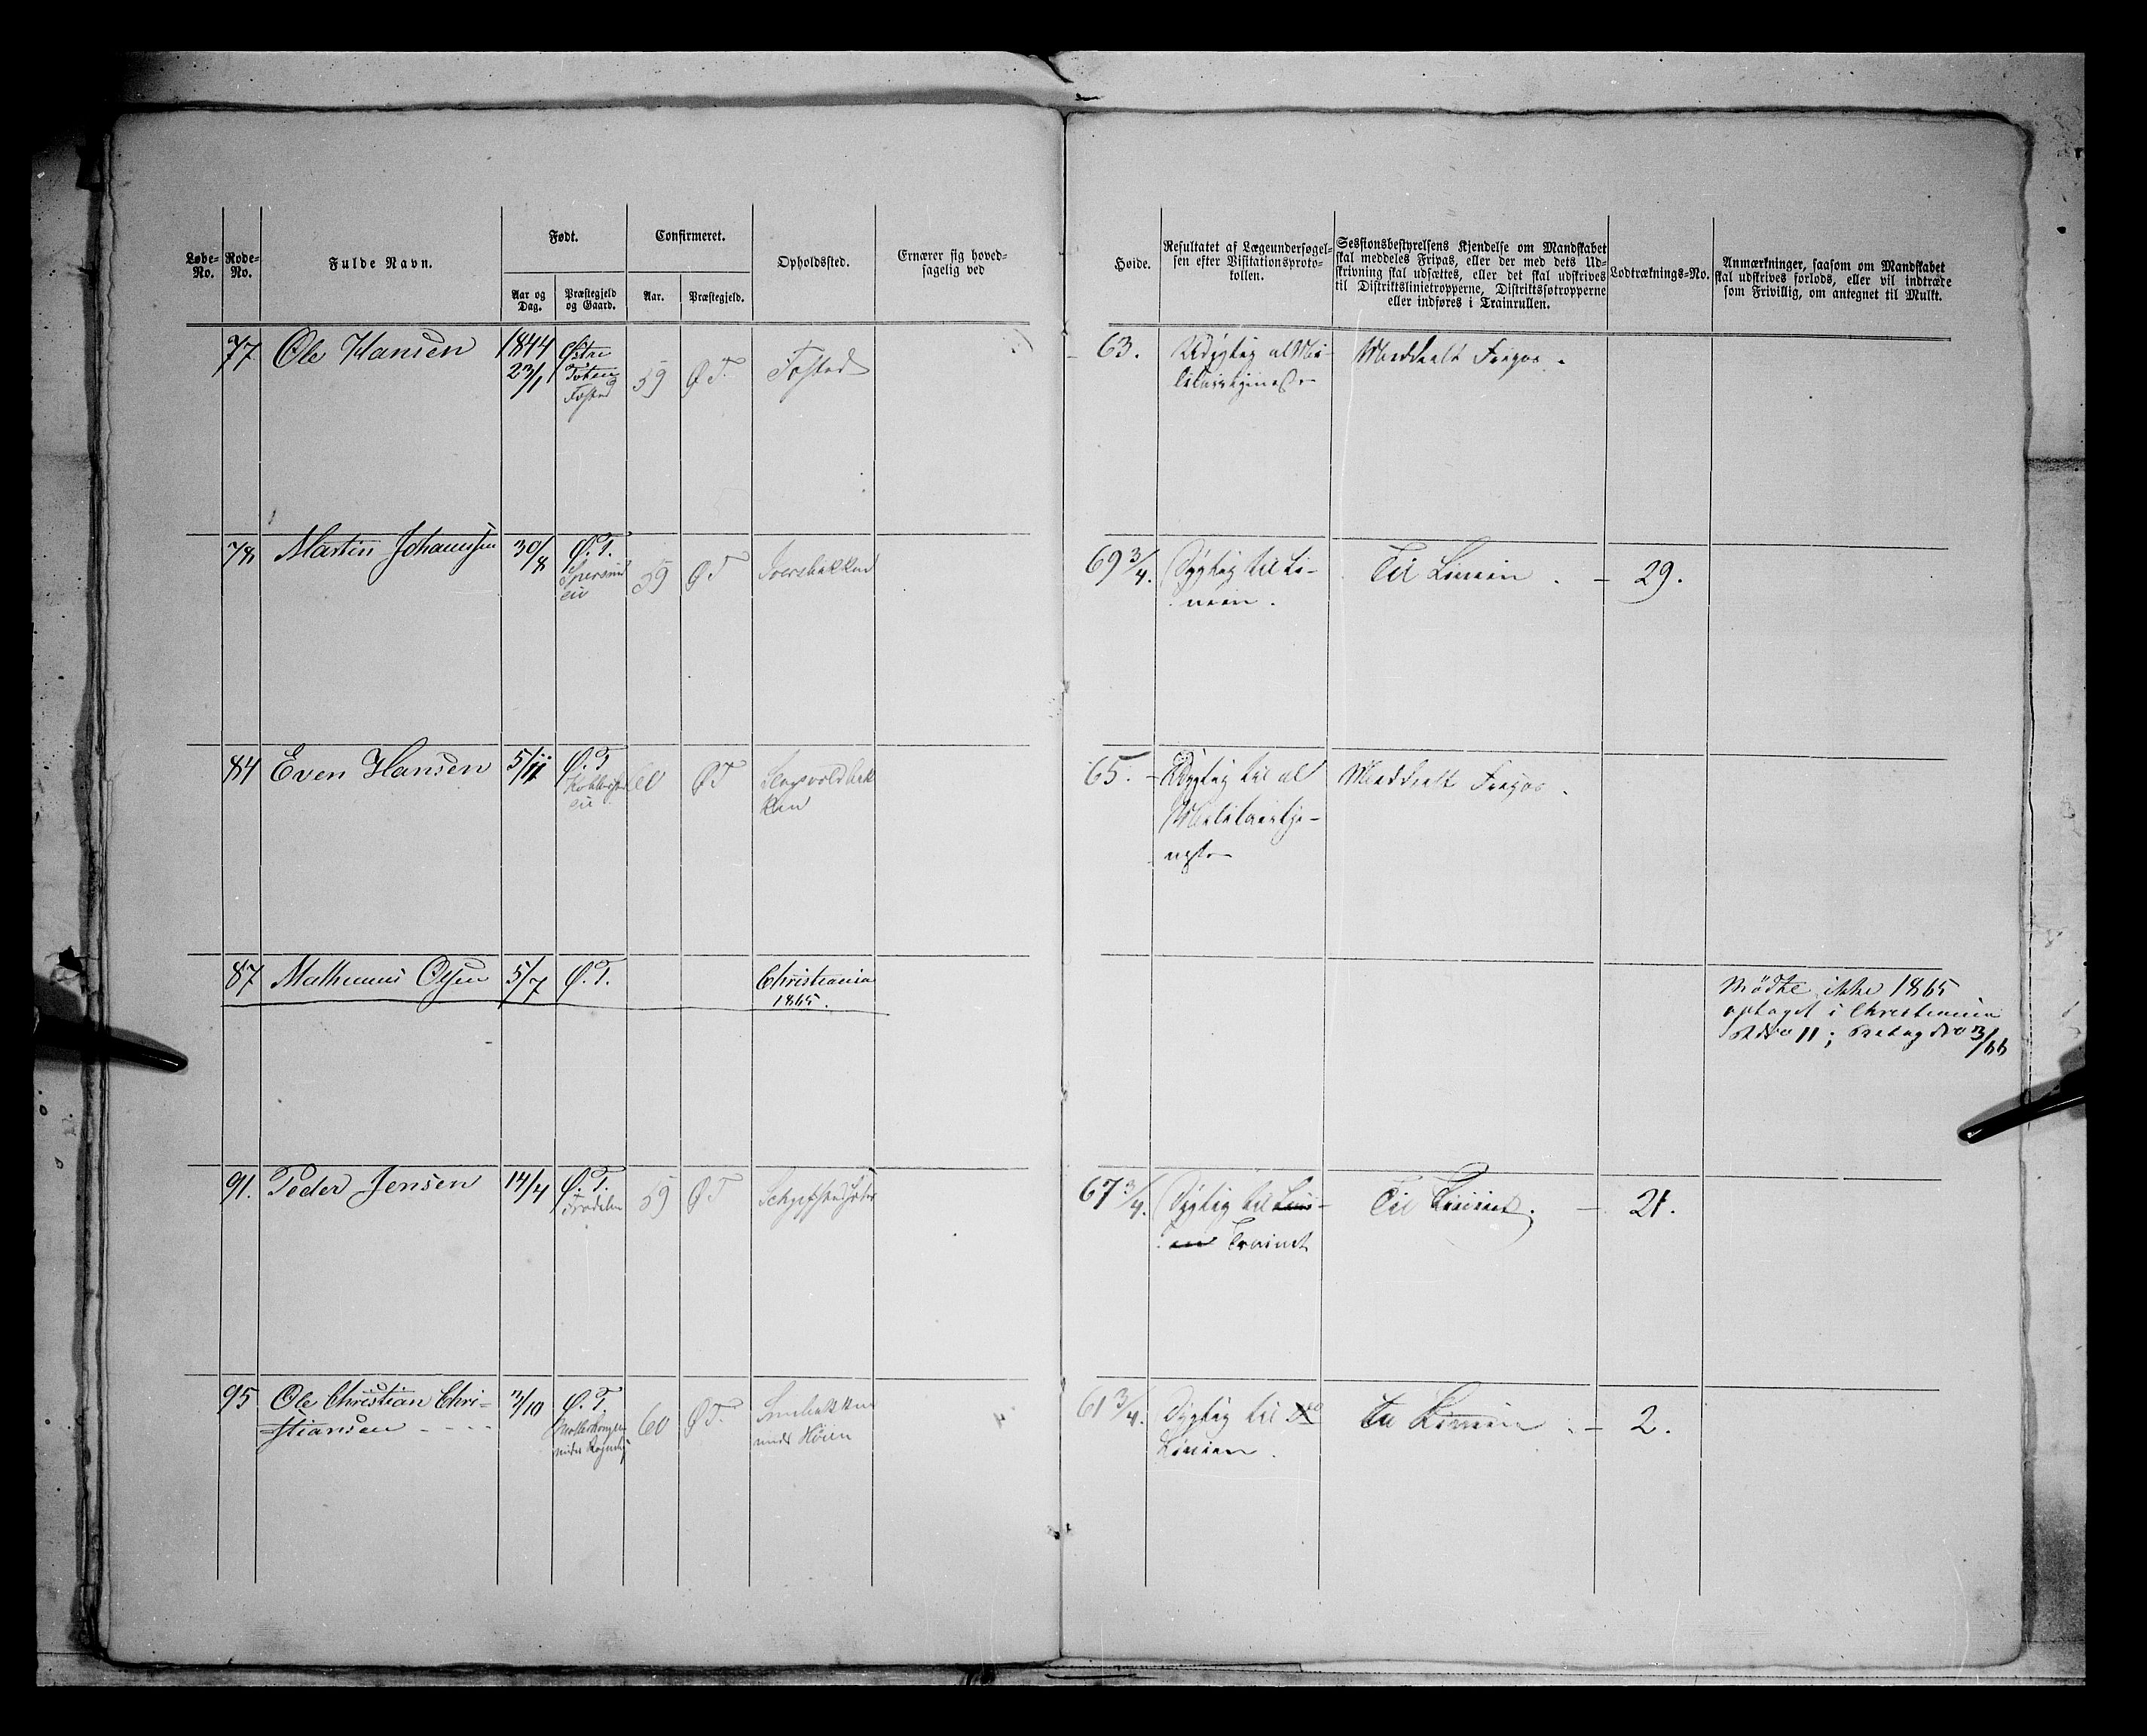 Løbe-No.
Rode-No.
Fulde Navn.
Født.
Aar og Dag.
Præstegjeld og Gaard.
Confirmeret.
Aar.
Præstegjeld.
Opholdssted.
Ernærer sig hoved-
sagelig ved
Høide.
Resultatet af Lægeundersøgel-
sen efter Visitationsproto-
kollen.
Sessionsbestyrelsens Kjendelse om Mandskabet
skal meddeles Fripas, eller der med dets Ud-
skrivning skal udsættes, eller det skal udskrives
til Distriktslinietropperne, Distriktsfotropperne
eller indføres i Trainrullen.
Lodtræknings-No.
Anmærkninger, saasom om Mandskabet
skal udskrives forlods, eller vil indtræde
som Frivillig, om antegnet til Mulkt.
77 Ole Hansen 1844 Østre
23/1 Toten 59 Ø T. Fosted
Fosted
63. Udygtig al Mi-
litairtjeneste
Meddeelt Fripas.
78 Martin Johannesen 30/8 Ø.T.
eie 59 Ø T
69 3/4. Dygtig til Li-
nien.
Til Linien. - 29.
84 Even Hansen 5/11 Ø.T
eie Ø T
65. - Udygtig til al
Militairtje-
neste
Meddeelt Fripas.
87 Matheus Olsen 5/7 Ø.T. Christiania
1865.
Mødte ikke 1865
optaget i Christiania
91. Peder Jensen 14/4 Ø.T. 59 Ø T
67 3/4. Dygtig til Lini-
en Trainet
Til - 21.
95 Ole Christian Chri-
stiansen 3/10 Ø.T. 60 Ø T.
under under Høien
61 3/4. Dygtig til
Linien.
Til Linien. - 2.